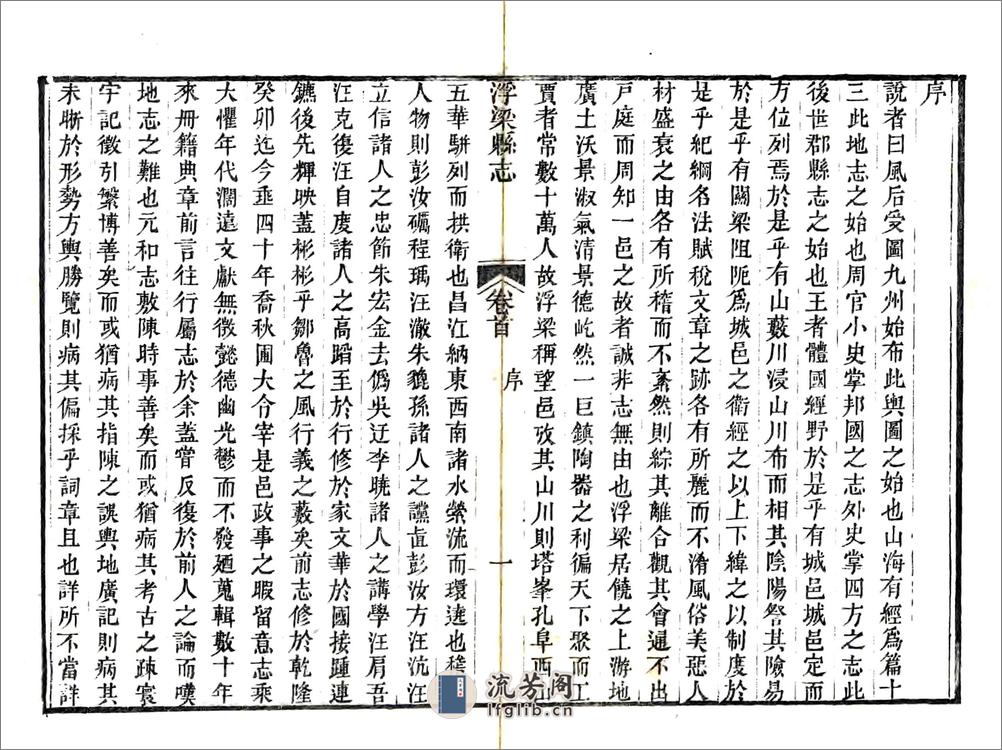 序
說者曰風后受圖九州始布此輿圖之始也山海有經爲篇十
三此地志之始也周官小史掌邦國之志外史掌四方之志此
後世郡縣志之始也王者體國經野於是乎有城邑城邑定而
方位列焉於是乎有山藪川浸山川布而相其陰陽詧其險易
於是乎有關梁阻阨爲城邑之衛經之以上下緯之以制度於
是乎紀綱名法賦稅文章之跡各有所麗而不淆風俗美惡人
材盛衰之由各有所稽而不紊然則綜其離合觀其會通不出
戸庭而周知一邑之故者誠非志無由也浮梁居饒之上游地
廣土沃景淑氣清景德屹然一巨鎮陶器之利徧天下聚而工
賈者常數十萬人故浮梁稱望邑攷其山川則塔峯孔阜西
浮梁縣志 卷首 序 一
五華駢列而拱衛也昌江納東西南諸水縈流而環遶也稽
人物則彭汝礪程瑀汪澈朱貔孫諸人之讜直彭汝方汪沆汪
立信諸人之忠節朱宏金去僞吳迂李曉諸人之講學汪肩吾
汪克後汪自度諸人之高蹈至於行修於家文華於國接踵連
鑣後先輝映蓋彬彬乎鄒魯之風行義之藪矣前志修於乾隆
癸卯迄今垂四十年喬秋圃大令宰是邑政事之暇留意志乘
大懼年代濶遠文獻無徵懿德幽光鬱而不發廼蒐輯數十年
來冊籍典章前言往行屬志於余蓋嘗反復於前人之論而嘆
地志之難也元和志敷陳時事善矣而或猶病其考古之疎寰
宇記徵引繁博善矣而或猶病其指陳之誤輿地廣記則病其
未晰於形勢方輿勝覽則病其偏採乎詞章且也詳所不當詳
流芳阁
lfglib.cn